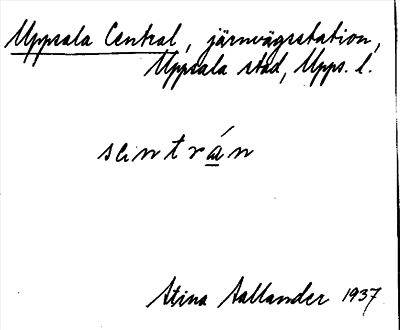 Uppsala Central, järnvägsstation,
Uppsala stad, Upps. l.
sentrán
Stina Aallander 1937